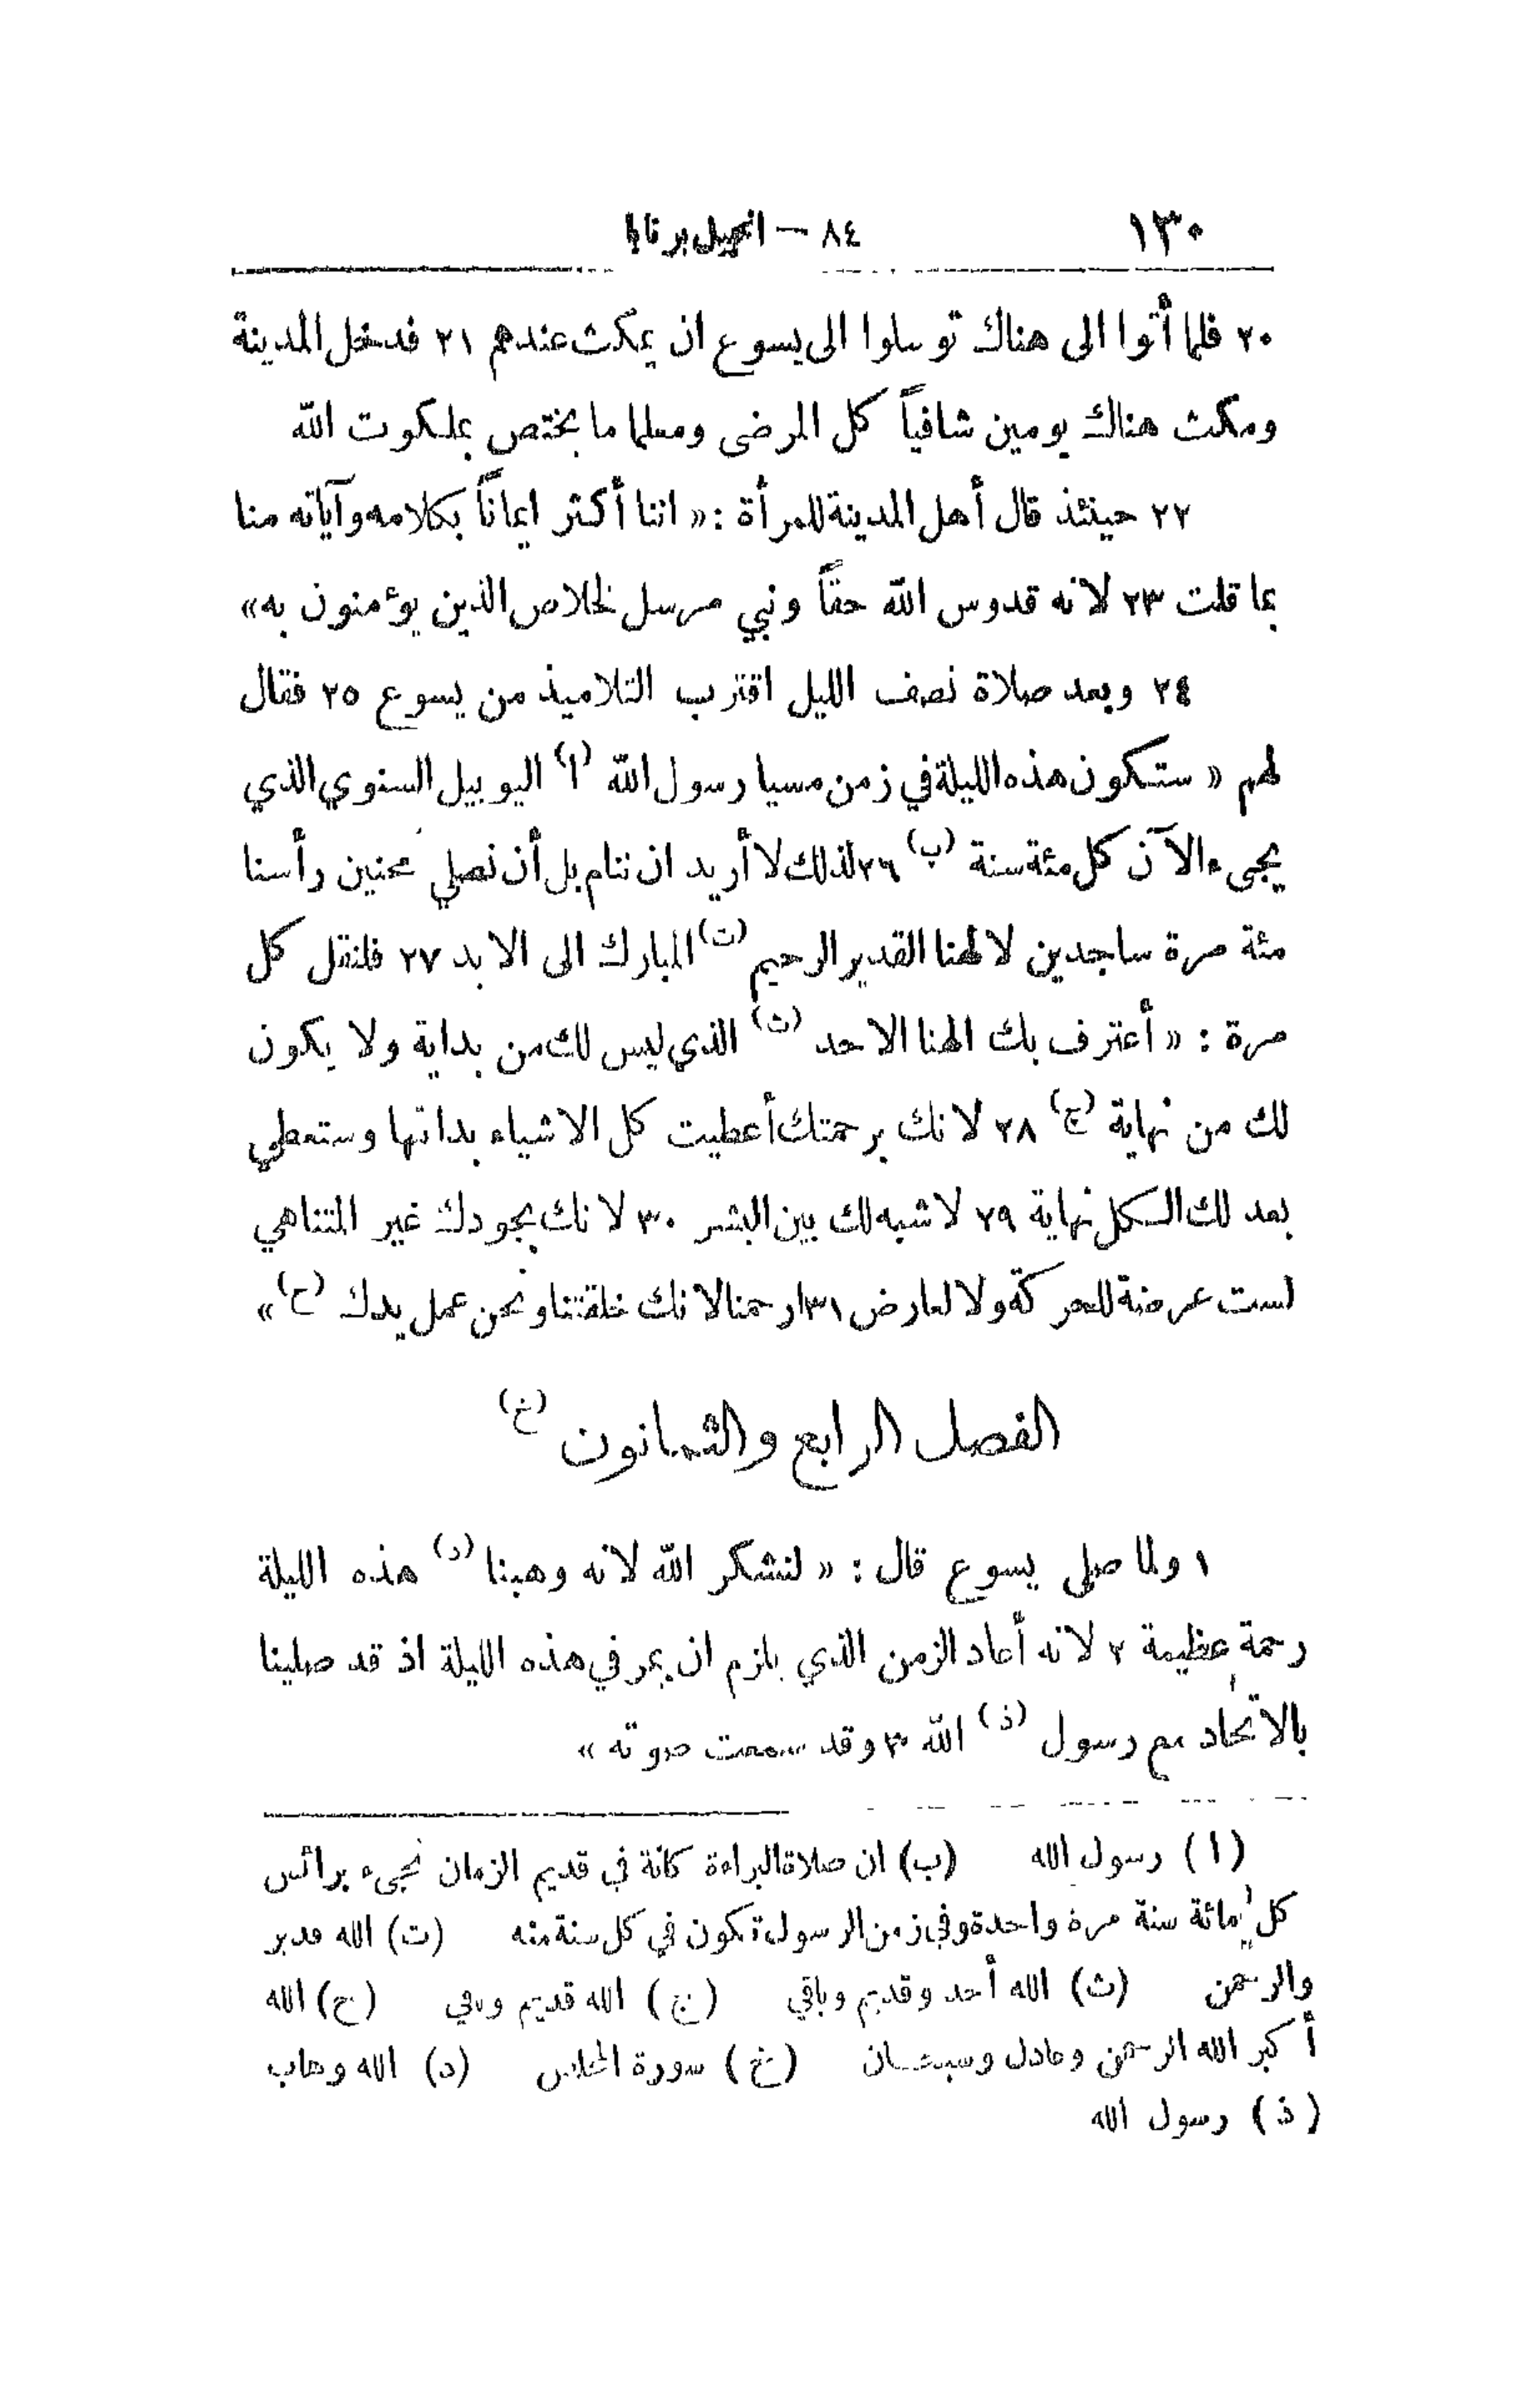 ١٣٠ ٨٤ — انجيل برنابا
٢٠ فلما أتوا الى هناك توسلوا الى يسوع ان يمكث عندهم ٢١ فدخل المدينة
ومكث هناك يومين شافياً كل المرضى ومعلما ما يختص بملكوت الله
٢٢ حينئذ قال أهل المدينة للمرأة : « اننا أكثر ايماناً بكلامه وآياته منا
بما قلت ٢٣ لانه قدوس الله حقاً ونبي مرسل لخلاص الذين يؤمنون به »
٢٤ وبعد صلاة نصف الليل اقترب التلاميذ من يسوع ٢٥ فقال
لهم « ستكون هذه الليلة في زمن مسيا رسول الله (ا) اليوبيل السنوي الذي
يجىء الآن كل مئة سنة (ب) ٢٦ لذلك لا أريد ان ننام بل أن نصلي محنين رأسنا
مئة مرة ساجدين لالهنا القدير الرحيم (ت) المبارك الى الابد ٢٧ فلنقل كل
مرة : « أعترف بك الهنا الاحد (ث) الذي ليس لك من بداية ولا يكون
لك من نهاية (ج) ٢٨ لانك برحمتك أعطيت كل الاشياء بداتها وستعطي
بعد لك الكل نهاية ٢٩ لا شبه لك بين البشر ٣٠ لانك بجودك غير المتناهي
لست عرضة للحركة ولا لعارض ٣١ ارحمنا لانك خلقتنا ونحن عمل يدك (ح) »
الفصل الرابع والثمانون (خ)
١ ولما صلى يسوع قال : « لنشكر الله لانه وهبنا (د) هذه الليلة
رحمة عظيمة ٢ لانه أعاد الزمن الذي يلزم ان يمر في هذه الليلة اذ قد صلينا
بالاتحاد مع رسول (ذ) الله ٣ وقد سمعت صوته »
(ا) رسول الله (ب) ان صلاة البراءة كانة في قديم الزمان نجىء برائس
كل مائة سنة مرة واحدة وفى زمن الرسول تكون في كل سنة منه (ت) الله قدير
والرحمن (ث) الله أحد وقديم وباقي (ج) الله قديم وباقي (ح) الله
أكبر الله الرحمن وعادل وسبحان (خ) سورة الخلاص (د) الله وهاب
(ذ) رسول الله